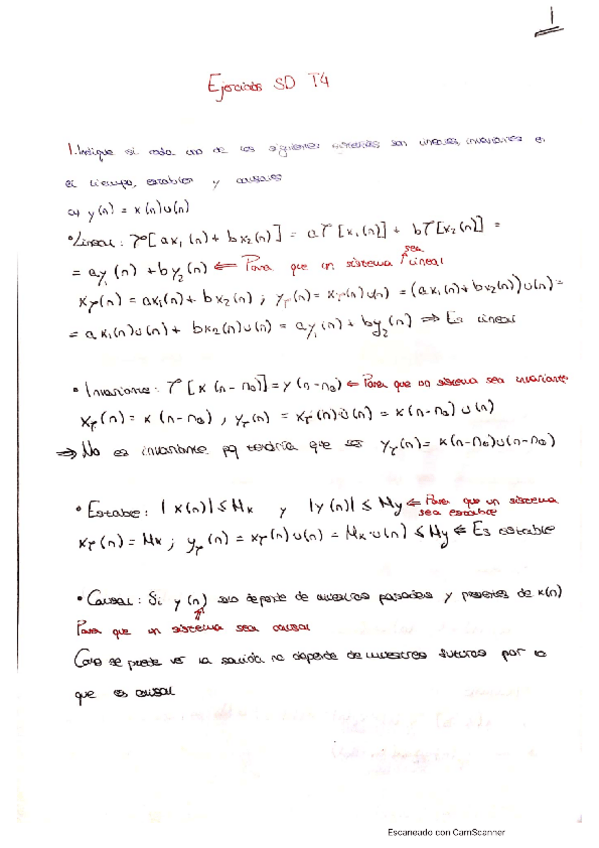 1
Ejercicios SD T4
1. Indique si cada uno de los siguientes sistemas son lineales, invariantes en
el tiempo, estables y causales
a) y(n) = x(n)u(n)
• Lineal: T[ax₁(n) + bx₂(n)] = aT[x₁(n)] + bT[x₂(n)] =
= ay₁(n) + by₂(n) ⇐ Para que un sistema sea lineal
x_T(n) = ax₁(n) + bx₂(n) ; y_T(n) = x_T(n)u(n) = (ax₁(n) + bx₂(n))u(n) =
= ax₁(n)u(n) + bx₂(n)u(n) = ay₁(n) + by₂(n) ⇒ Es lineal
• Invariante: T[x(n-n₀)] = y(n-n₀) ⇐ Para que un sistema sea invariante
x_T(n) = x(n-n₀) , y_T(n) = x_T(n)u(n) = x(n-n₀)u(n)
⇒ No es invariante pq tendría que ser y_T(n) = x(n-n₀)u(n-n₀)
• Estable: |x(n)| ≤ Mx y |y(n)| ≤ My ⇐ Para que un sistema
sea estable
x_T(n) = Mx ; y_T(n) = x_T(n)u(n) = Mx·u(n) ≤ My ⇐ Es estable
• Causal: Si y(n) solo depende de muestras pasadas y presentes de x(n)
Para que un sistema sea causal
Como se puede ver la salida no depende de muestras futuras por lo
que es causal
Escaneado con CamScanner